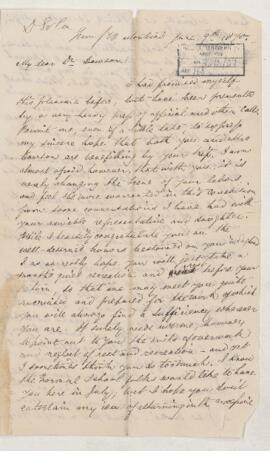 My dear Dr. Dawson
I had promised myself
this pleasure before, but have been prevented
by a very heavy press of official and other calls.
Permit me, even if a little late to express
my sincere hope that both you and Mrs
Dawson are benefiting by your trip. I am
almost afraid however, that with you, it is
merely changing the scene of your labors,
and feel the more warranted in this
from some conversations I have had with
your amiable representative and daughter.
While I heartily congratulate you on the
well-deserved honors bestowed on you
I as earnestly hope you will just take a
months real recreation and rest before your
return, so that one may meet you quite
recruited and prepared for the work of which
you will always find a sufficiency wherever
you are. It surely needs no one, however,
to point out to you the evils of overwork
and neglect of rest and recreation - and yet
I sometimes think you do too much. I know
the Normal School folks would like to have
you here in July, but I hope you don't
entertain any idea of returning